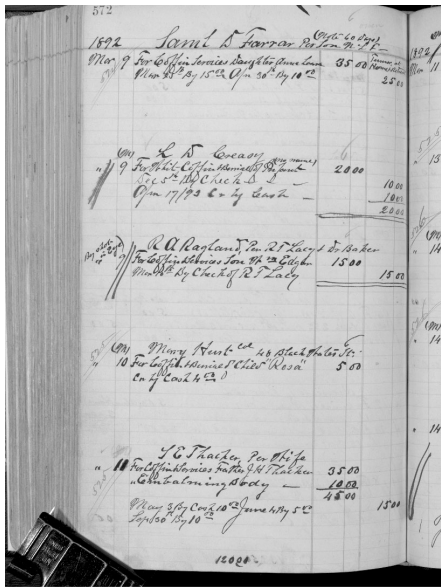 572
(Note 60 Days)
1892 Saml D Farrar Per Son N. S. F.
Mar 9 For Coffin Services Daughter Anne 35 00
Mar 25th By 15 00 Apr 30th By 10 00 25 00
L D Creasy
" 9 For White Coffin & Services (no name) Infant 20 00
Dec 5th By Check 10 00
Apr 17/93 Cr by Cash 10 00
20 00
R A Ragland, Per R T Lacy & Dr Baker
" 9 For Coffin Services Son Edgar 15 00
Mar By Check of R T Lacy 15 00
Mary Hunt Col 48 Black Water St.
" 10 For Coffin & Services Child "Rosa" 5 00
Cr by Cash 4 00
T E Thacker, Per Wife
" 11 For Coffin Services Father J H Thacker 35 00
" Embalming Body 10 00
45 00
May 3 By Cash 10 00 June 4 By 5 00 15 00
Sept 30th By 10 00
12000
1892
Mar 11
" 13
" 14
" 14
" 14